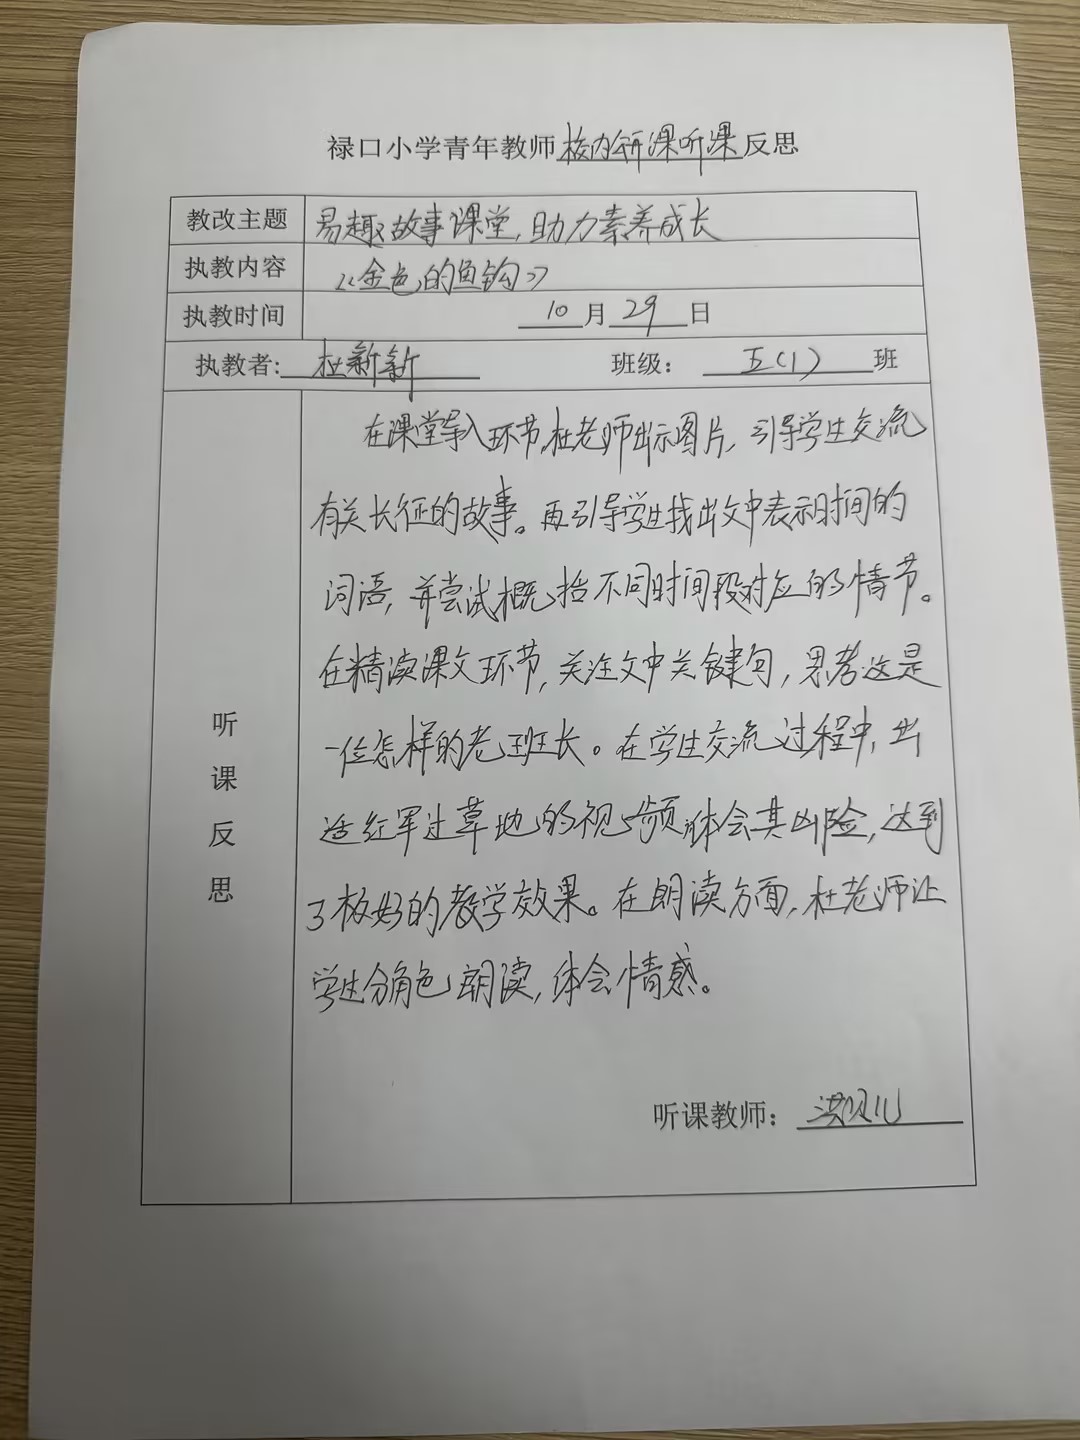 禄口小学青年教师校内研课听课反思
教改主题 易趣故事课堂，助力素养成长
执教内容 《金色的鱼钩》
执教时间 10月29日
执教者: 杜新新 班级： 五(1)班
在课堂导入环节，杜老师出示图片，引导学生交流
有关长征的故事。再引导学生找出文中表示时间的
词语，并尝试概括不同时间段对应的情节。
在精读课文环节，关注文中关键句，思考这是
一位怎样的老班长。在学生交流过程中，出
适红军过草地的视频体会其凶险，达到
了极好的教学效果。在朗读方面，杜老师让
学生分角色朗读，体会情感。
听
课
反
思
听课教师： 洪